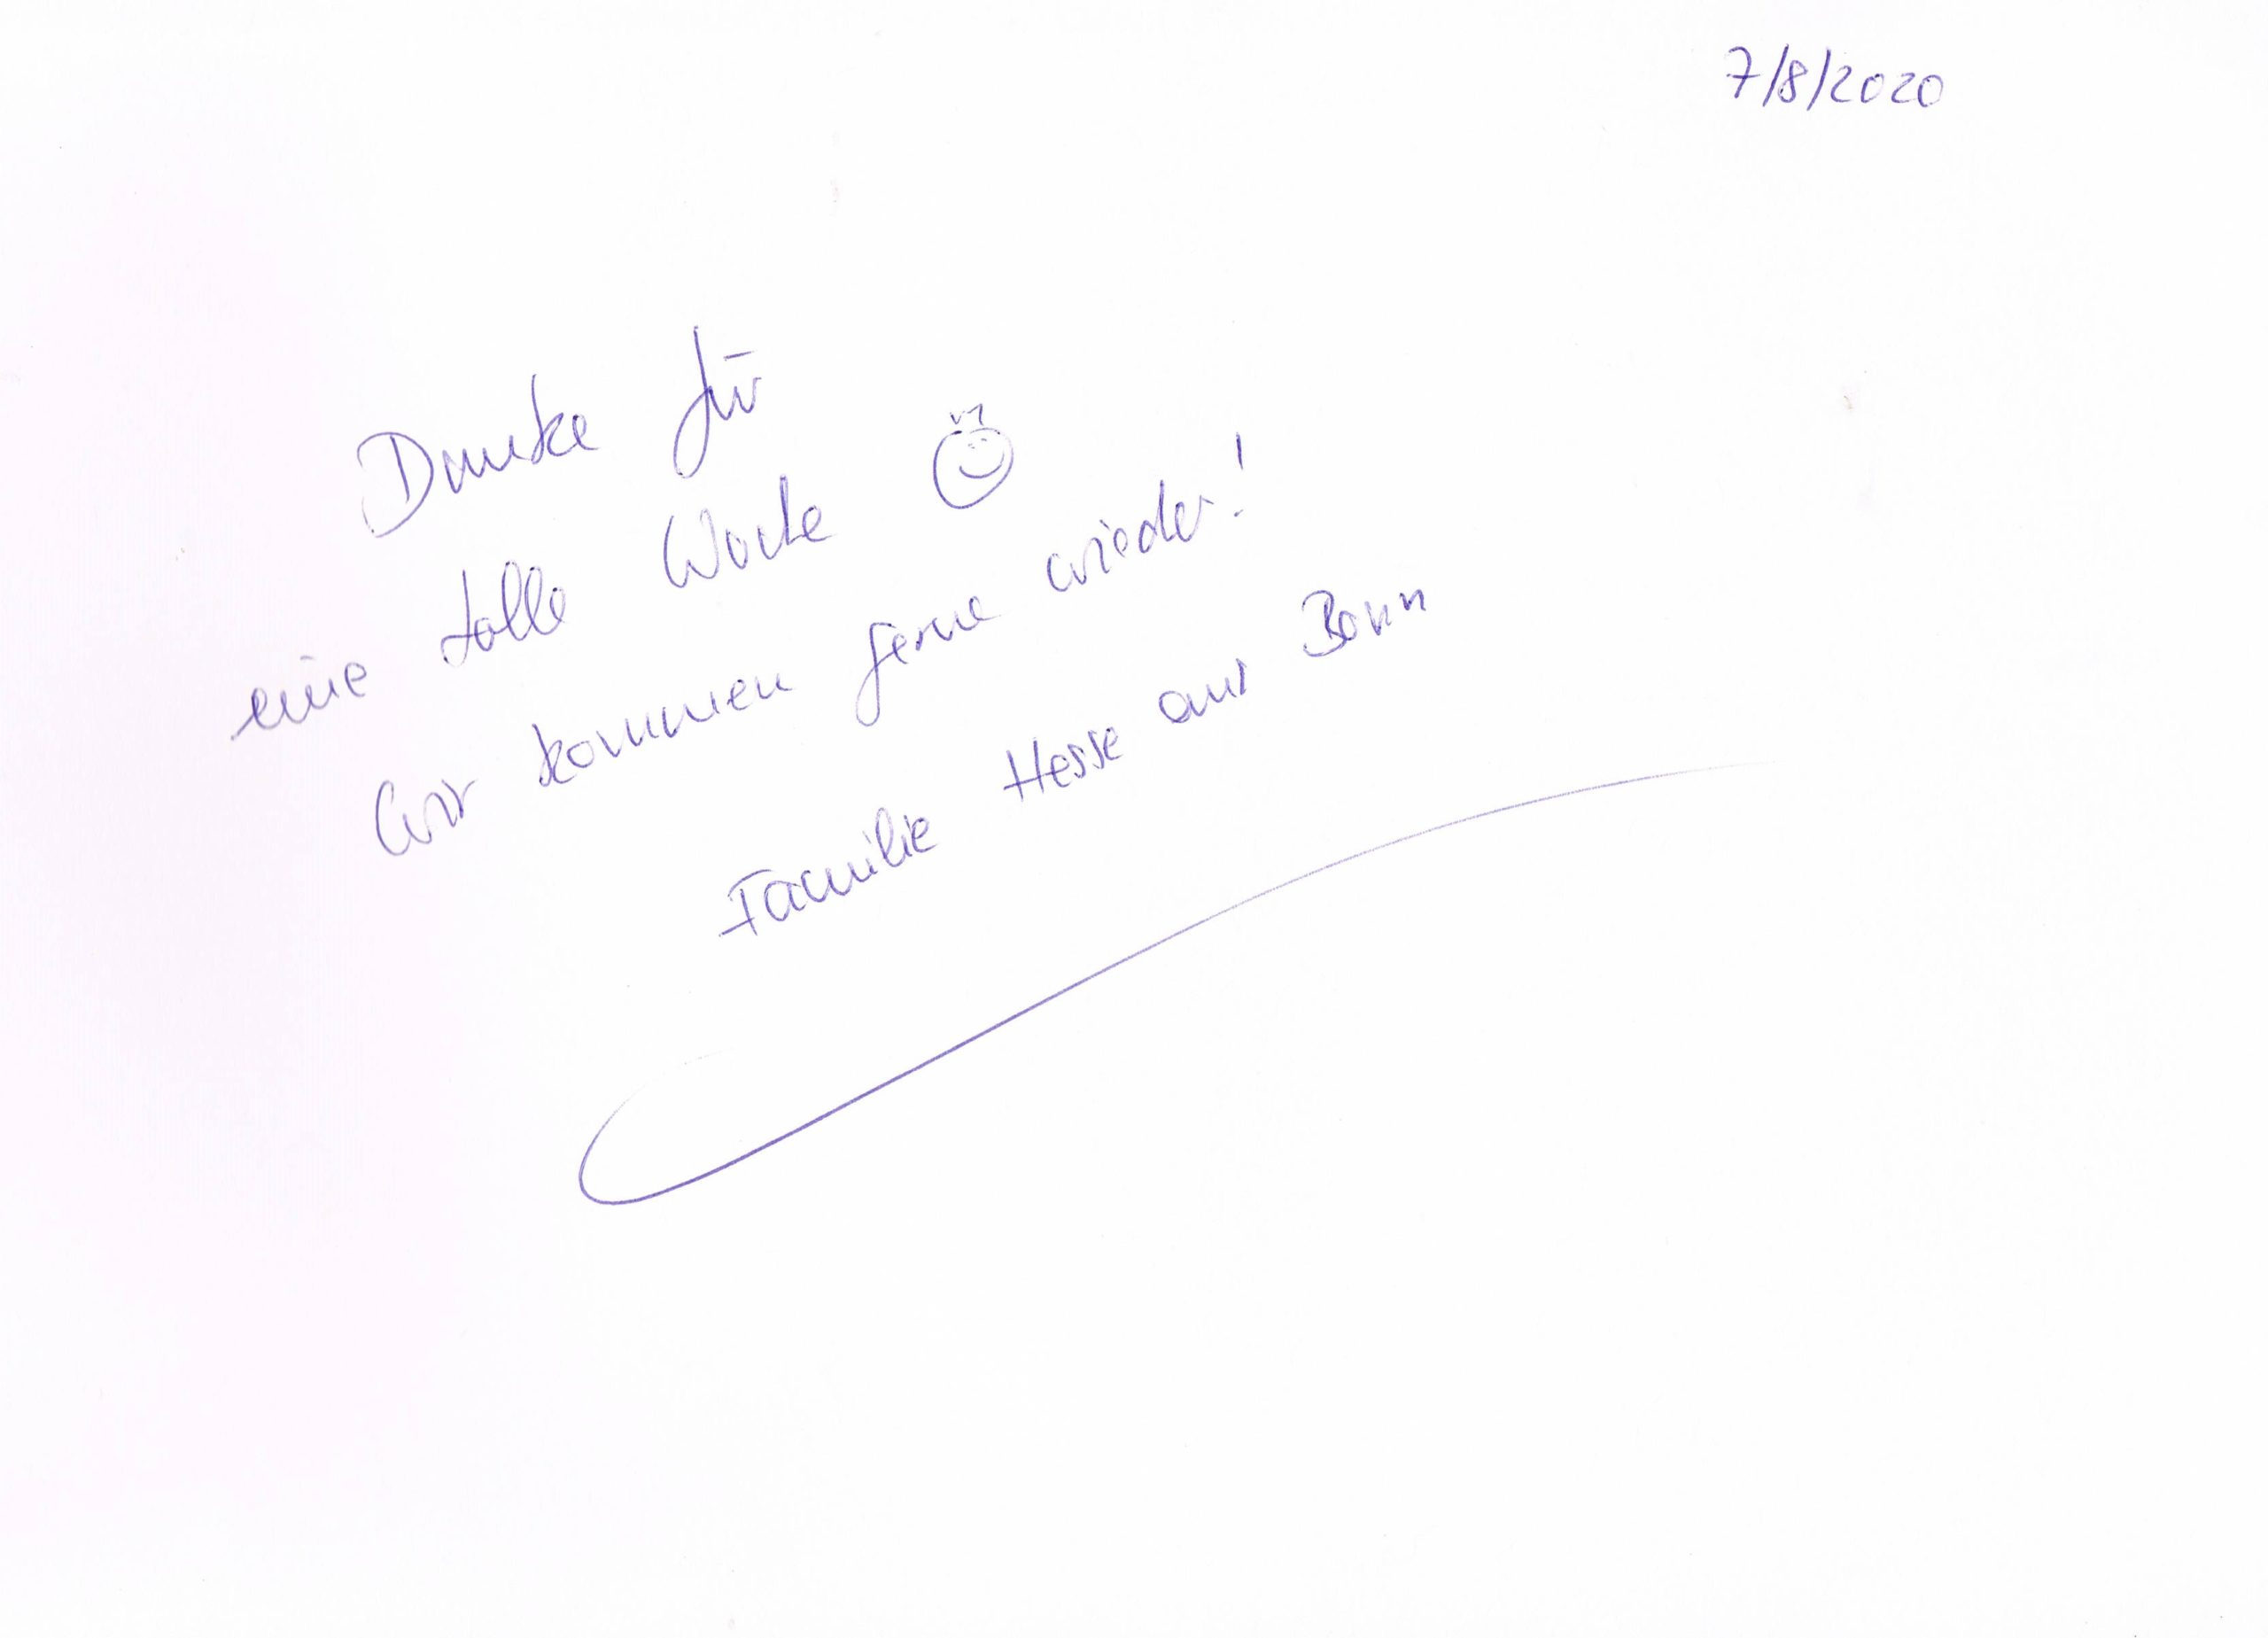 7/8/2020
Danke für
eine tolle Woche
Wir kommen gerne wieder!
Familie Hesse aus Bonn